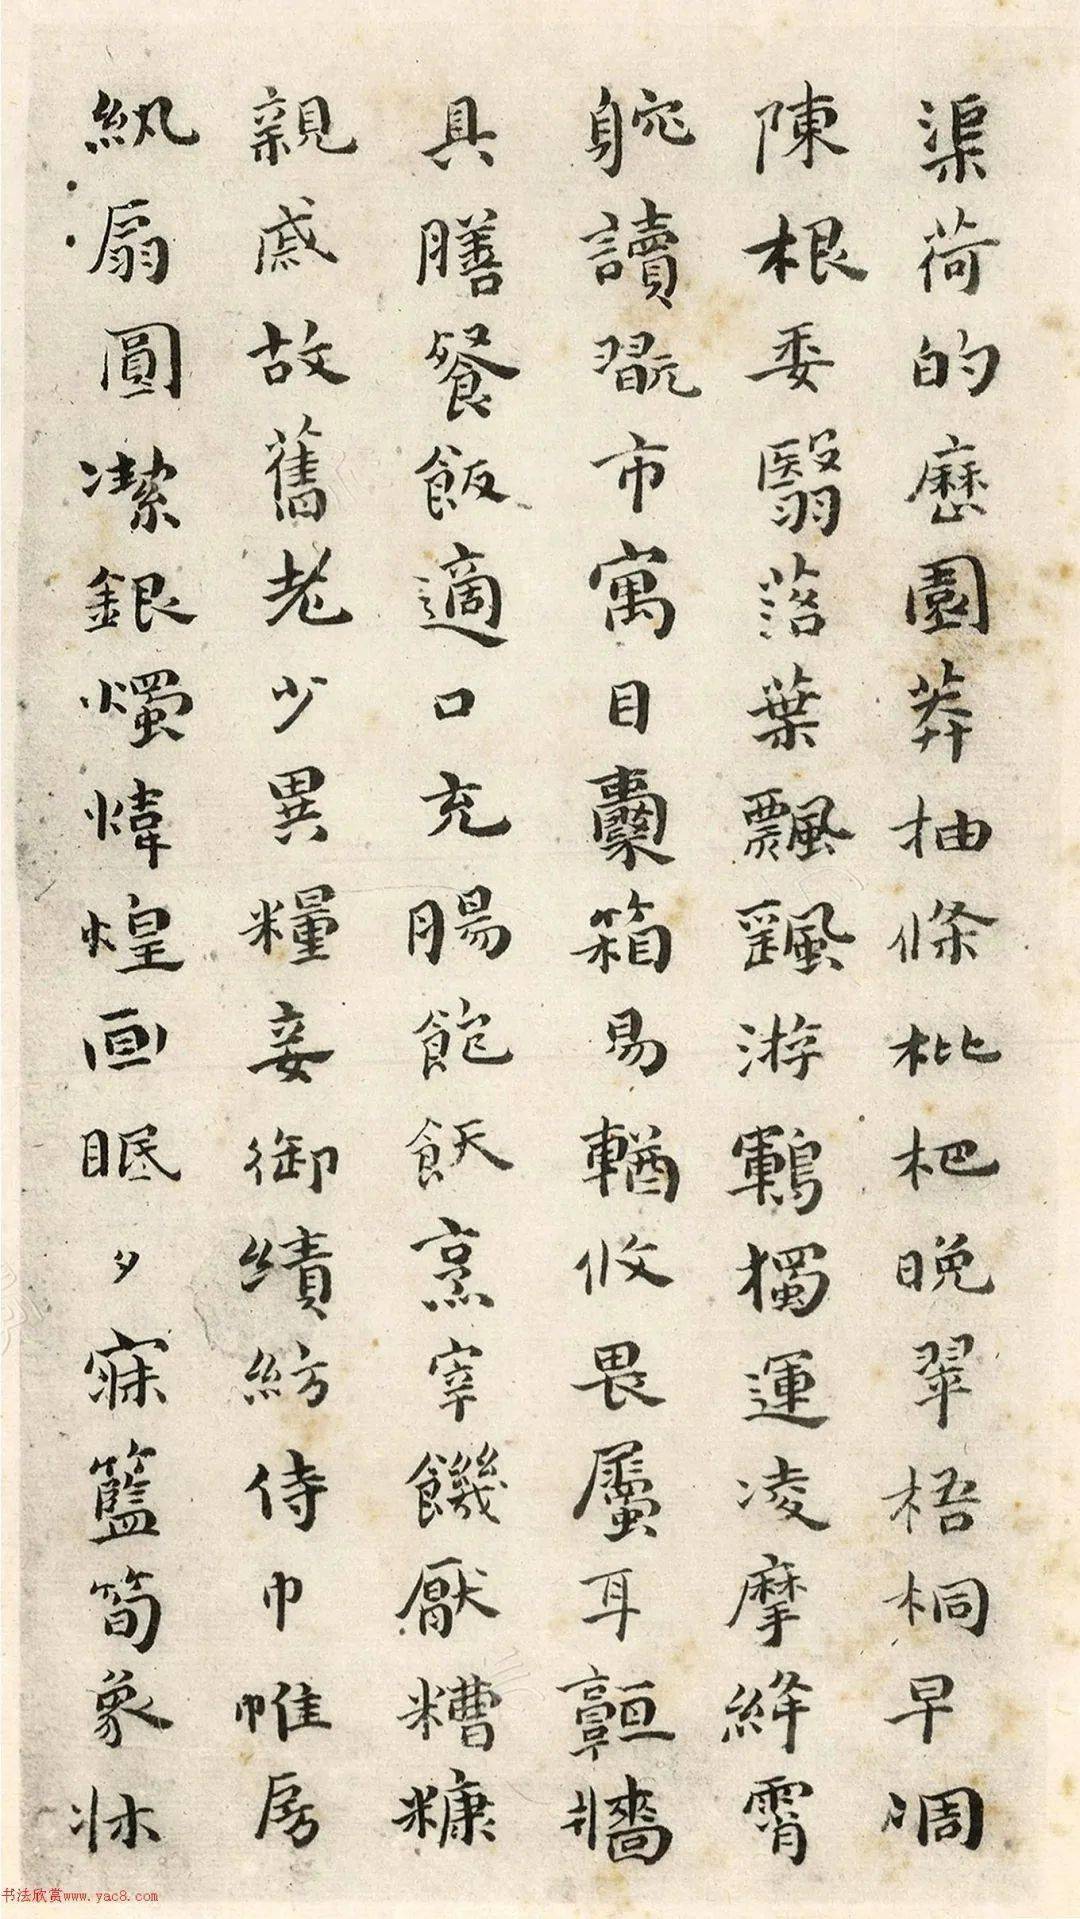 渠荷的歷園莽抽條枇杷晚翠梧桐早凋
陳根委翳落葉飄颻游鵾獨運凌摩絳霄
躭讀翫市寓目囊箱易輶攸畏屬耳垣牆
具膳餐飯適口充腸飽飫烹宰饑厭糟糠
親戚故舊老少異糧妾御績紡侍巾帷房
紈扇圓潔銀燭煒煌画眠夕寐籃筍象牀
书法欣赏www.yac8.com